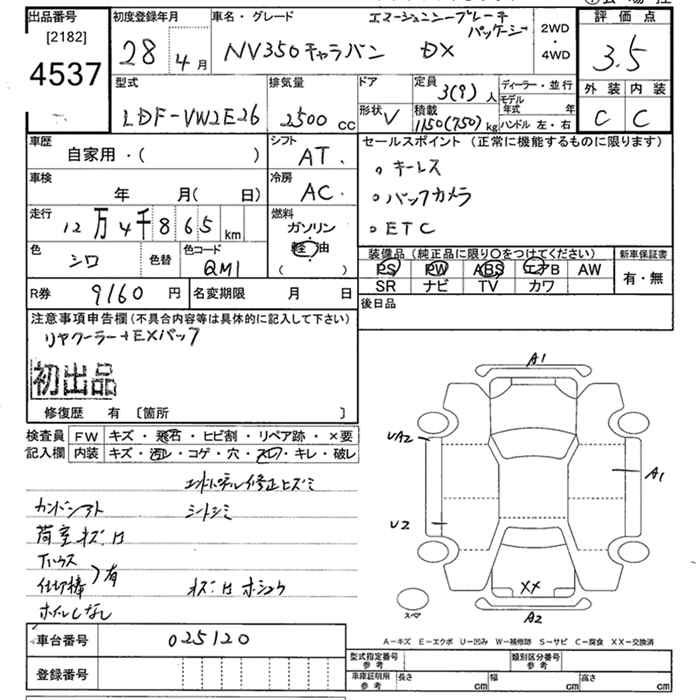 出品番号
[2182]
4537
初度登録年月
28年4月
車名・グレード
エマージェンシーブレーキ
パッケージ
NV350キャラバン DX
2WD
・
4WD
評価点
3.5
外装 内装
C C
型式
LDF-VW2E26
排気量
2500 cc
ドア
形状 V
定員
3(9)人
積載
1150(750)kg
ディーラー・並行
モデル年式 年
ハンドル 左・右
車歴
自家用・( )
シフト
AT.
セールスポイント(正常に機能するものに限ります)
。キーレス
。バックカメラ
。ETC
車検
年 月( 日)
冷房
AC.
走行
12万4千865km
燃料
ガソリン
軽油
( )
色
シロ
色替
色コード
QM1
装備品(純正品に限り○をつけてください)
PS PW ABS エアB AW
SR ナビ TV カワ
新車保証書
有・無
R券 9160円
名変期限 月 日
後日品
注意事項申告欄(不具合内容等は具体的に記入して下さい)
リヤクーラー+EXパック
初出品
修復歴 有〔箇所 〕
検査員
記入欄
FW キズ・飛石・ヒビ割・リペア跡・×要
内装 キズ・汚レ・コゲ・穴・スレ・キレ・破レ
シートシミ
荷室キズ凹
仕切棒
有
ホイルしなし
A1
UA2
A1
U2
XX
A2
スペア
A-キズ E-エクボ U-凹み W-補修跡 S-サビ C-腐食 XX-交換済
車台番号 025120
登録番号
型式指定番号
参考
類別区分番号
参考
車庫証明用
参考
長さ cm 幅 cm 高さ cm